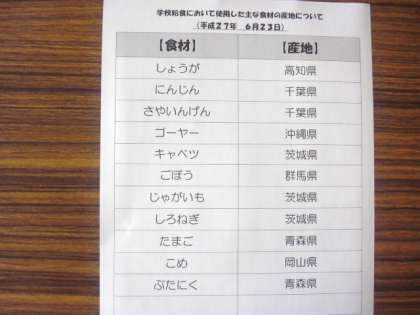 学校給食において使用した主な食材の産地について
（平成27年　6月23日）
【食材】　【産地】
しょうが　高知県
にんじん　千葉県
さやいんげん　千葉県
ゴーヤー　沖縄県
キャベツ　茨城県
ごぼう　群馬県
じゃがいも　茨城県
しろねぎ　茨城県
たまご　青森県
こめ　岡山県
ぶたにく　青森県